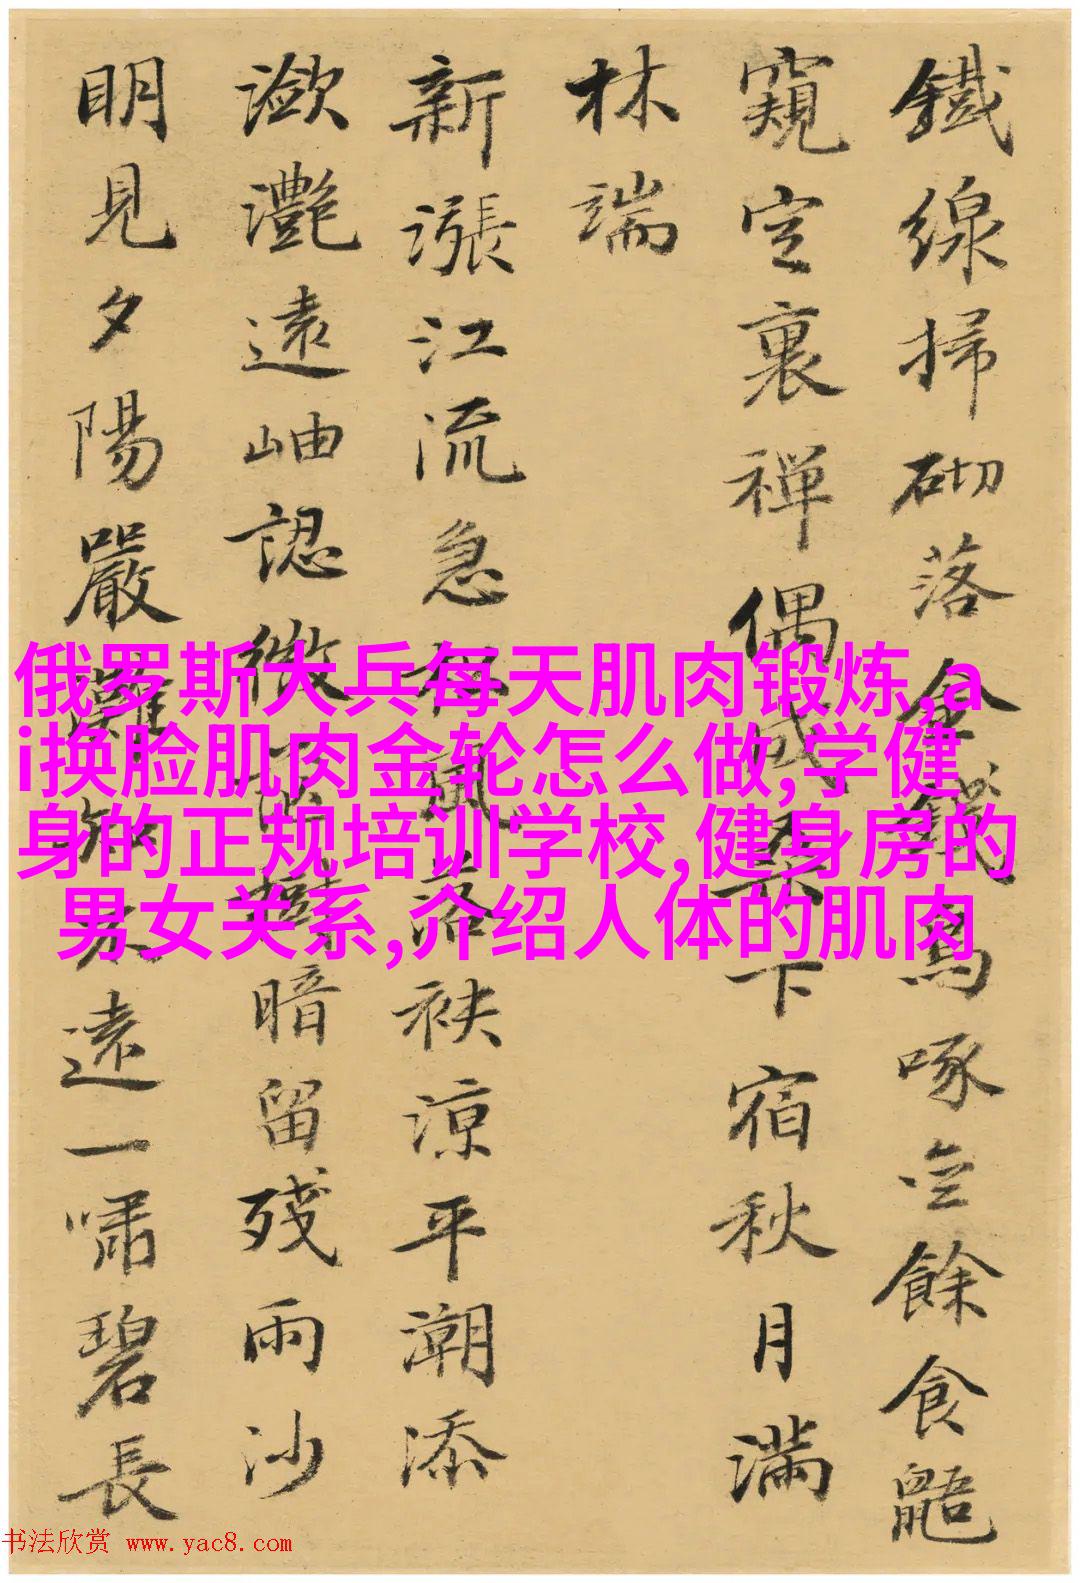 鐵線掃砌落金鳥啄空餘食鼯
窺空裏禪偶成下宿秋月滿
林端
新漲江流急風落袂涼平潮添
瀲灧遠岫認微茫樹暗留殘雨沙
明見夕陽嚴灘知不遠一嘯碧長
俄罗斯大兵每天肌肉锻炼,a
i换脸肌肉金轮怎么做,学健
身的正规培训学校,健身房的
男女关系,介绍人体的肌肉
书法欣赏 www.yac8.com